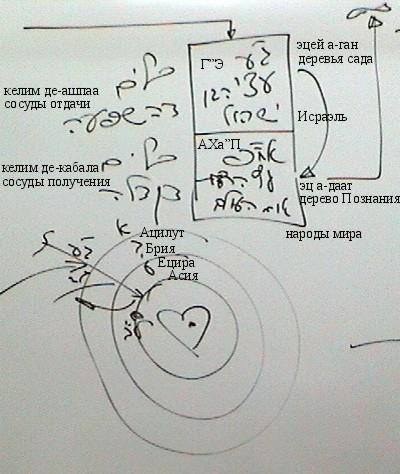 эцей а-ган
деревья сада
Г"Э
ג"ע
עצי הגן
ישראל
כלים
דהשפעה
келим де-ашпаа
сосуды отдачи
Исраэль
АХа"П
אח"פ
עץ הדעת
כלים
דקבלה
келим де-кабала
сосуды получения
эц а-даат
дерево Познания
народы мира
Ацилут
Брия
Ецира
Асия